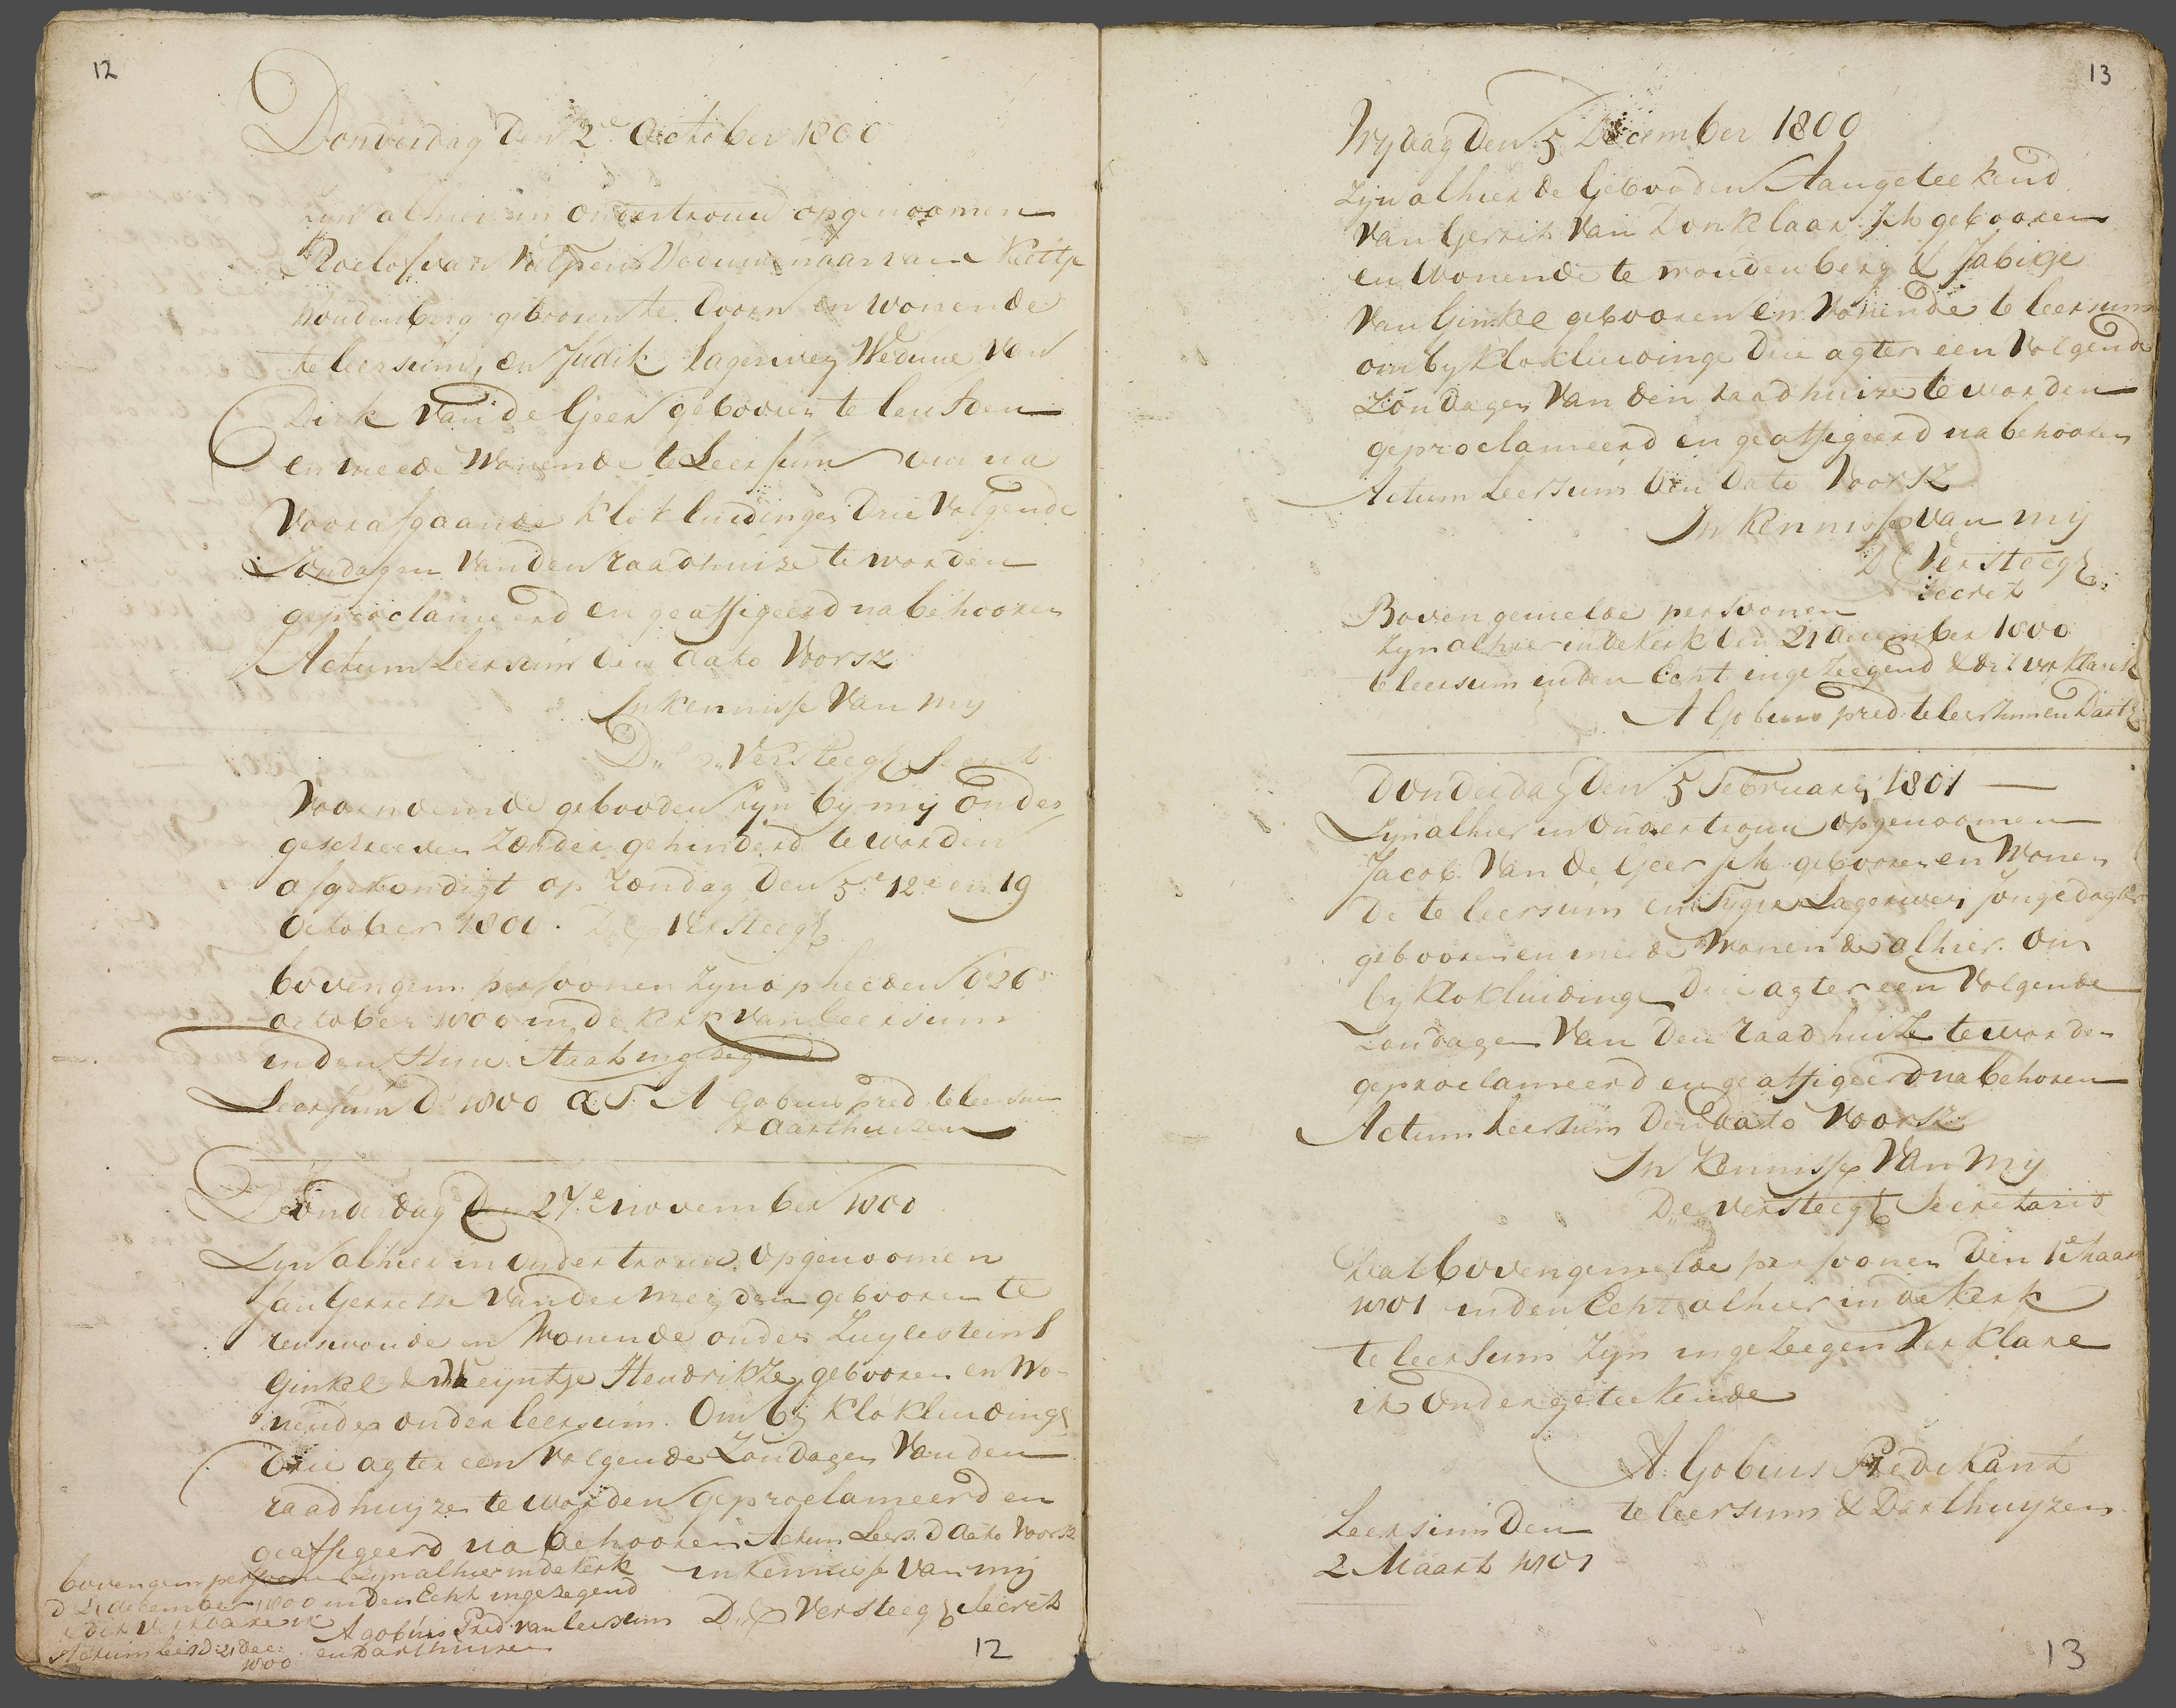 12
Donderdag den 2e October 1800
Zyn alhier in ondertrouw opgenoomen
Roelof van Weduwnaar van
Woudenberg gebooren te Doorn en wonende
te leersum, en Judik lagerweij Weduwe Van
Dirk Van de Geer gebooren te leusden
en meede Wonende te Leersum om na
Voorafgaande klokluidinges Drie Volgende
Sondagen Van den Raadhuize te worden
geproclameerd en geaffigeerd na behooren
Actum Leersum den dato Voorsz
In kennisse Van Mij
D Versteegh Secret
Voornoemde gebooden zyn by mij onder
geschreeven Zonder gehinderd te worden
afgekondigt op Zondag Den 5e 12e en 19
October 1800. Versteegh
bovengem. persoonen Zyn op heeden d 26
october 1800 in de kerk van leersum
in den Huw. Staat ingezegend
Leersum D 1800 A Gobius pred. te leersum
& Darthuizen
Donderdag Den 27e november 1800
Zyn alhier in Ondertrouw opgenoomen
Jan Gerretse Van der Meijden gebooren te
renswoude en Wonende onder Zuylestein
Ginkel & Weyntje Hendrikze gebooren en Wo-
nende onder leersum. Om bij klokluidinge
Drie agter een Volgende Zondagen Van den
raadhuyze te worden geproclameerd en
geaffigeerd na behooren Actum Leers. D dato Voorsz
bovengem persoonen Zyn alhier in de kerk
in kennisse Van mij
d 21 december 1800 in den Echt ingezegend
D Versteegh Secrets
dit verklare ik
A Gobius Pred. van leersum
Actum leers D: 21 Dec: en Darthuizen
1800
12
13
Vrydag Den 5 December 1800
Zijn alhier de Gebooden Aangeteekend
Van Gerrit Van Donkelaar Jk gebooren
en Wonende te woudenberg & Jabikje
Van Ginkel gebooren en Wonende te leersum
om by Klokluidinge Drie agter een Volgende
Zondagen Van den raadhuize te worden
geproclameerd en geaffigeerd na behooren
Actum Leersum Den Dato Voorsz
In Kennisse van mij
D Versteegh
Secret
Bovengemelde persoonen
Zyn alhier in de kerk den 21 december 1800
te leersum in den Echt ingezeegend & dit verklare ik
A Gobius pred. te leersum en Darth
Donderdag Den 5 February 1801
Zyn alhier in Ondertrouw opgenoomen
Jacob Van de Geer Jk gebooren en Wonen
de te leersum en Lagerweij Jonge dogter
gebooren en meede Wonende alhier. Om
by Klokluidinge Drie agter een Volgende
Zondagen Van Den raadhuize te worden
geproclameerd en geaffigeerd na behoren
Actum Leersum Den Dato Voorsz
In Kennisse Van Mij
D Versteegh Secretaris
Dat bovengemelde persoonen Den 1e Maart
1801 in den Echt alhier in de Kerk
te leersum Zyn ingezeegen Verklare
ik Ondergeteekende
A. Gobius Predikant
te leersum & Darthuyzen
Leersum Den
2 Maart 1801
13